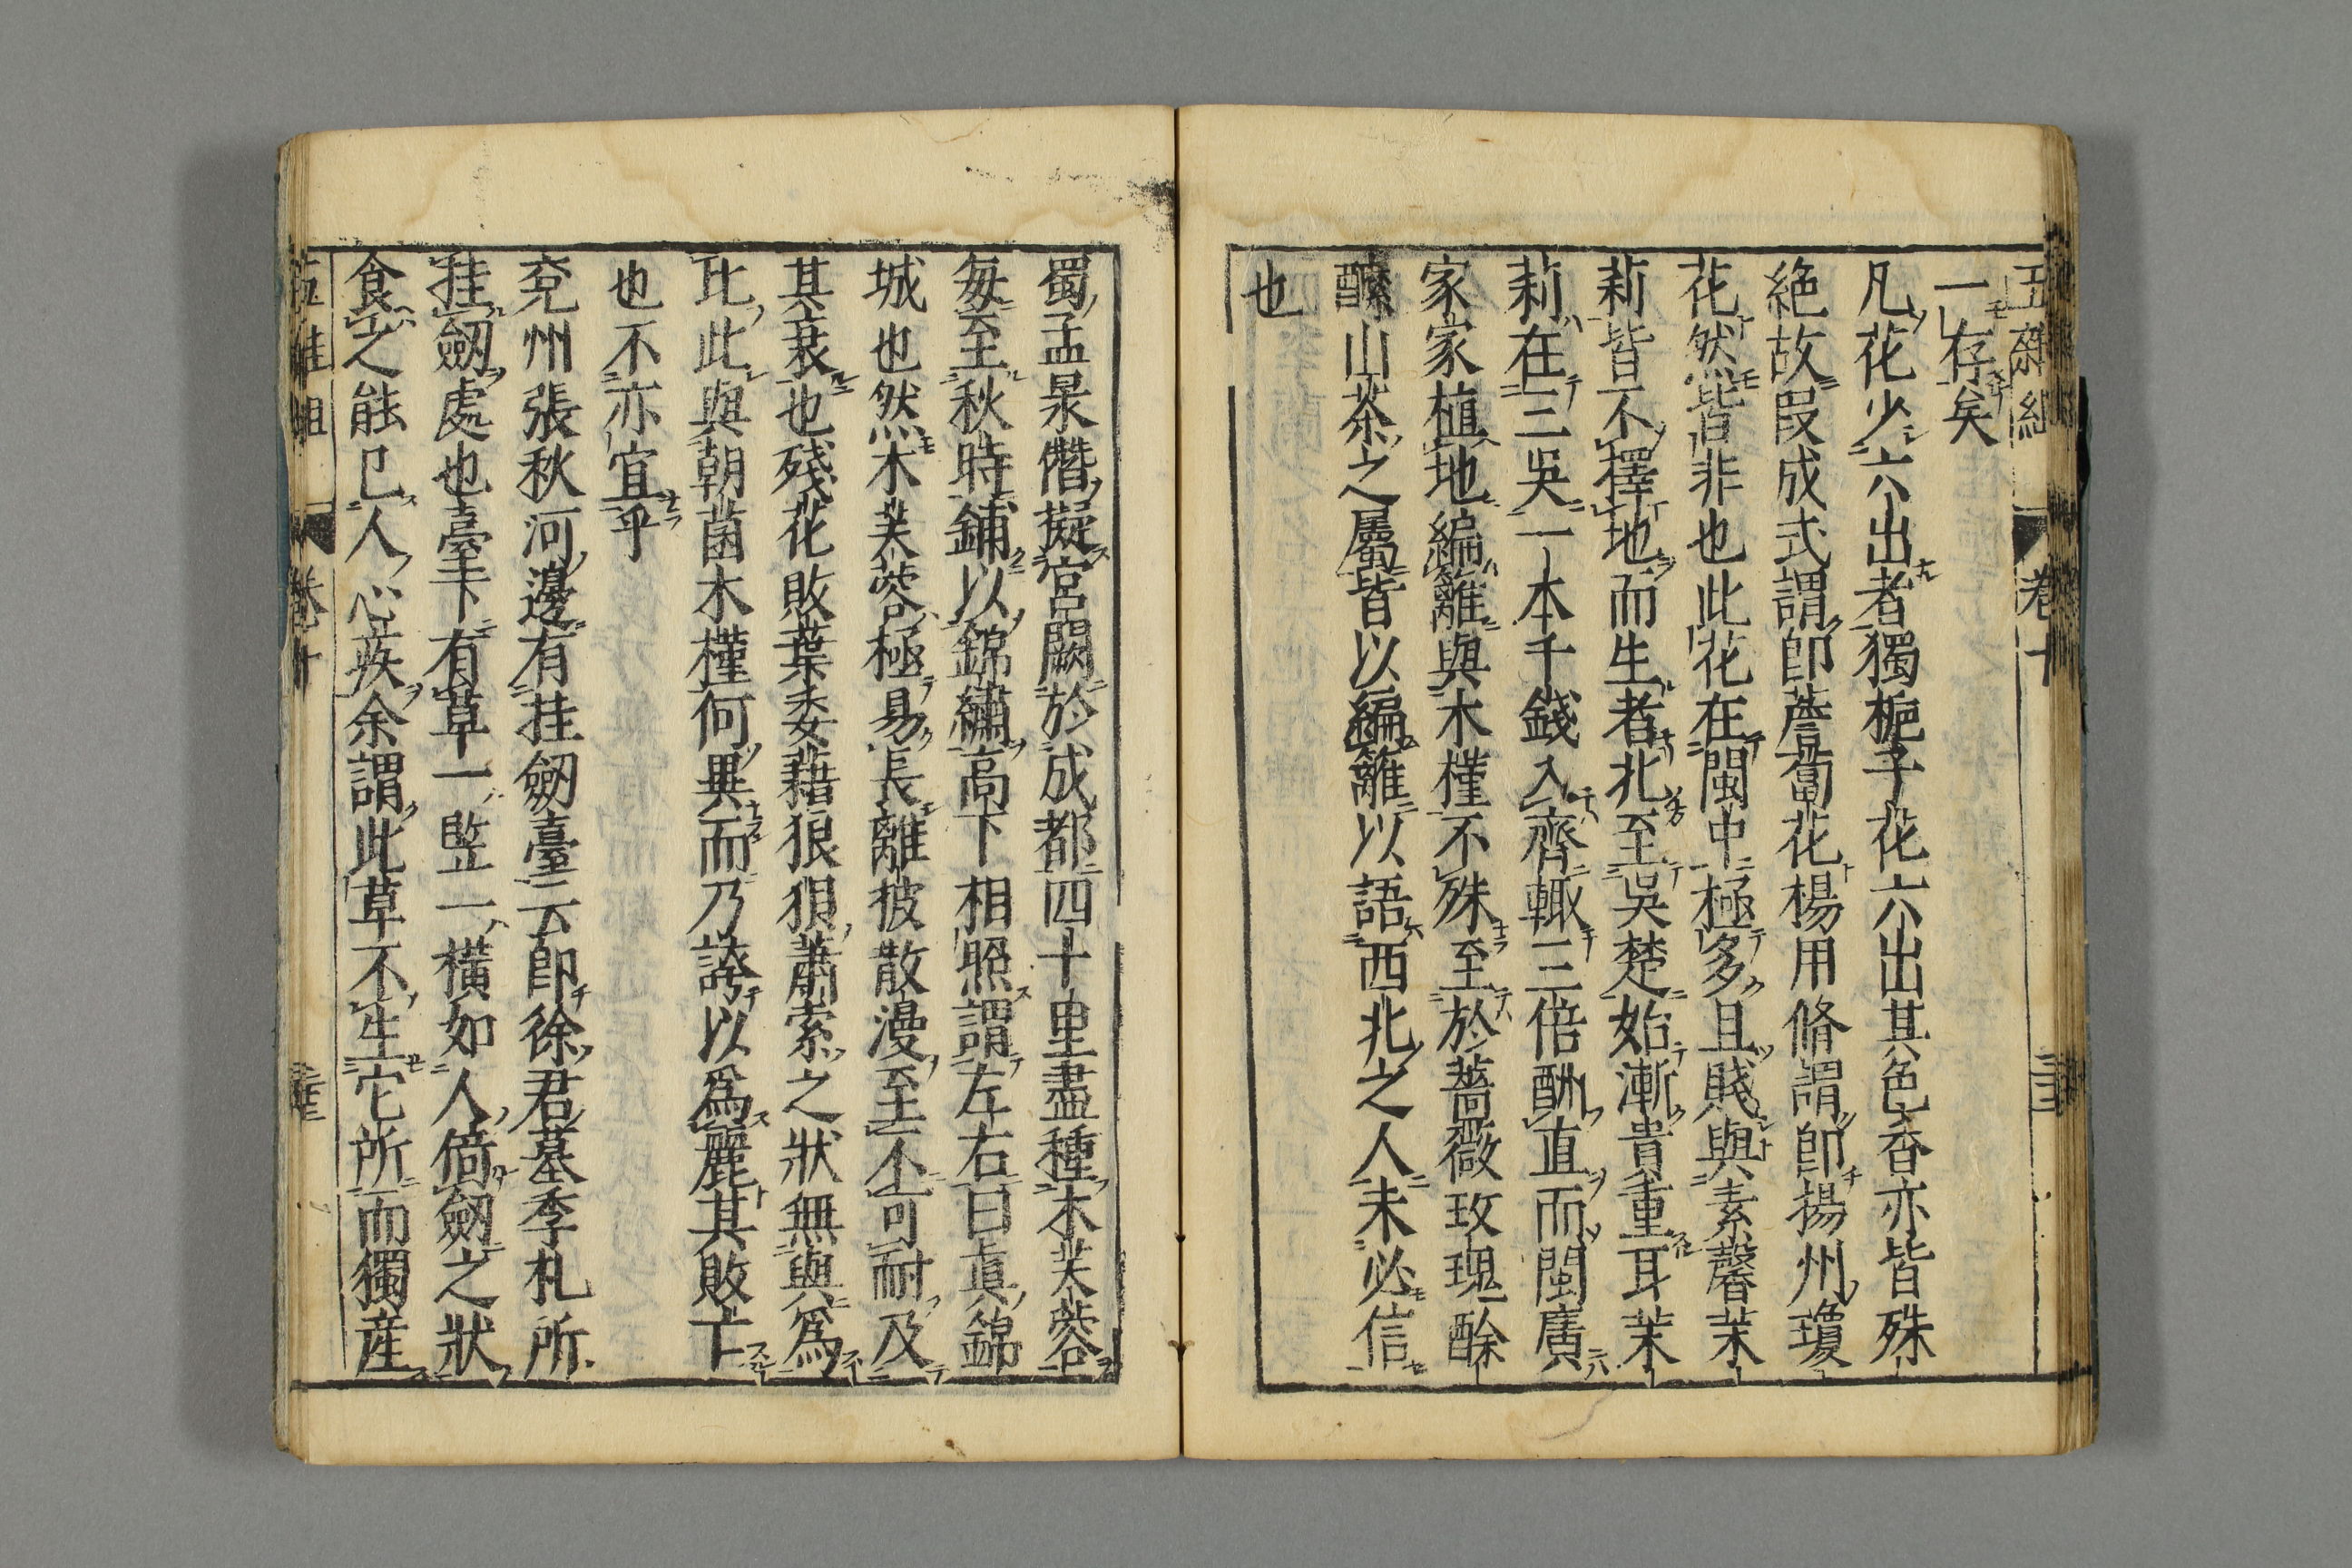 五雜俎 卷十
一存矣
凡花少六出者獨梔子花六出其色香亦皆殊
絶故段成式謂即薝蔔花楊用脩謂即揚州瓊
花然皆非也此花在閩中極多且賤與素馨茉
莉皆不擇地而生者北至吳楚始漸貴重耳茉
莉在三吳一本千錢入齊輙三倍酬直而閩廣
家家植地編籬與木槿不殊至於薔薇玫瑰酴
醿山茶之屬皆以編籬以語西北之人未必信
也
蜀孟㫤僭擬宮闕於成都四十里盡種木芙蓉
每至秋時鋪以錦繡高下相照謂左右曰眞錦
城也然木芙蓉極易長離披散漫至不可耐及
其衰也殘花敗葉委藉狠狽蕭索之狀無與爲
比此與朝菌木槿何異而乃誇以爲麗其敗亡
也不亦宜乎
兗州張秋河邊有挂劒臺云即徐君墓季札所
挂劒處也臺下有草一竪一橫如人倚劒之狀
食之能已人心疾余謂此草不生它所而獨産
五雜俎 卷十